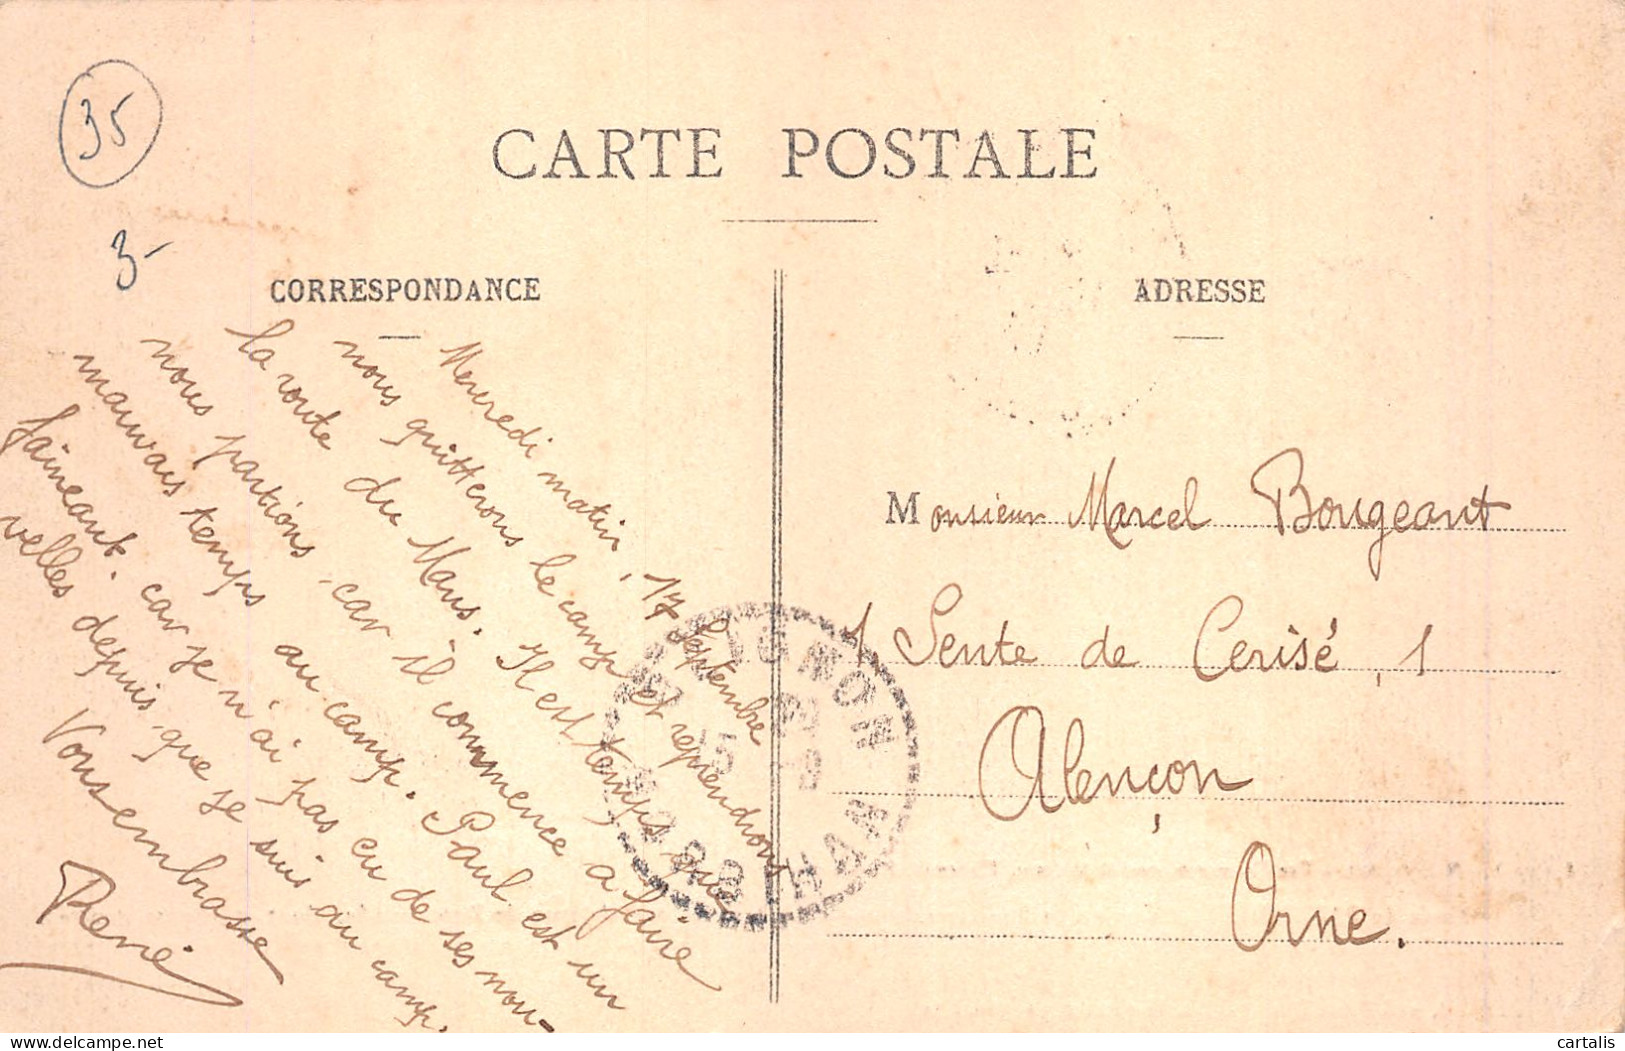 35
3-
CARTE POSTALE
CORRESPONDANCE
ADRESSE
Mercredi matin, 17 Septembre
nous quitterons le camp et reprendrons
la route du Mans. Il est temps que
nous partions, car il commence a faire
mauvais temps au camp. Paul est un
faineant, car je n'ai pas eu de ses nou-
velles depuis que je suis au camp.
Vous embrasse
René
Monsieur Marcel Bougeant
1 Sente de Cerisé, 1
Alençon
Orne.
cartalis